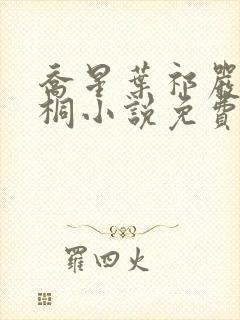 喬星葉祁嚴
桐小說免費
羅四火